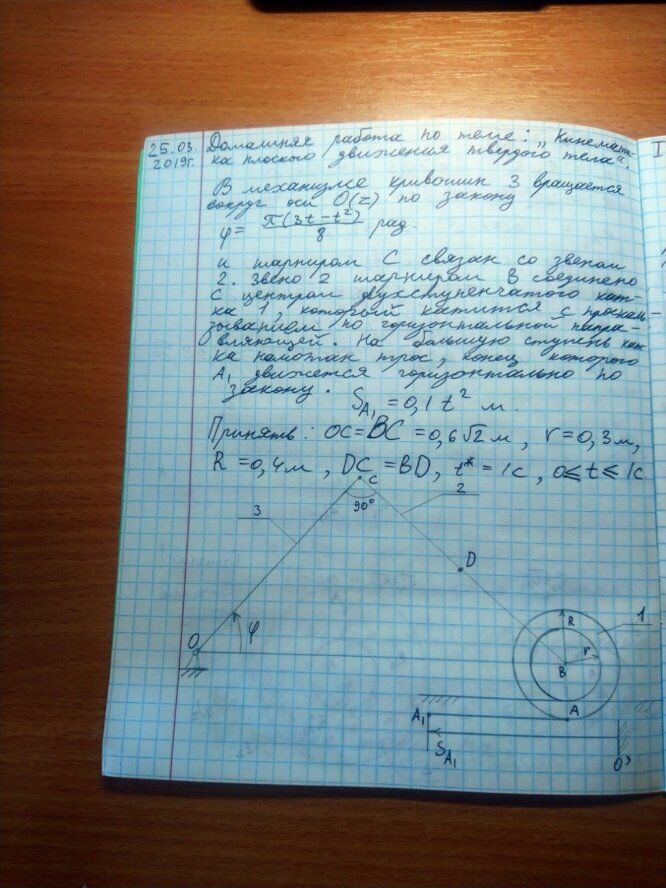 25.03. Домашняя работа по теме: „Кинемати-
2019г. ка плоского движения твердого тела".
В механизме кривошип 3 вращается
вокруг оси O(z) по закону
φ= π(3t-t²)/8 рад.
и шарниром С связан со звеном
2. Звено 2 шарниром В соединено
с центром двухступенчатого кат-
ка 1, который катится с проскаль-
зыванием по горизонтальной напра-
вляющей. На большую ступень кат-
ка намотан трос, конец которого
A₁ движется горизонтально по
закону.
S_A₁ = 0,1 t² м.
Принять: OC=BC=0,6√2 м, r=0,3м,
R=0,4м, DC=BD, t*=1c, 0≤t≤1c.
C
90°
2
3
D
φ
O
1
R
r
B
A
A₁
S_A₁
O'
I